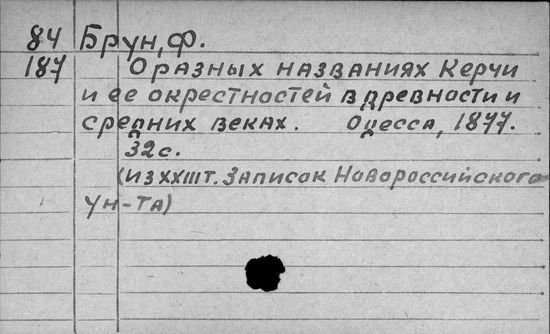 84 Брун, Ф.
187 О разных названиях Керчи
и ее окрестностей в древности и
средних веках. Одесса, 1877.
32 с.
(из XXIII т. Записок Новороссийского
Ун-та)